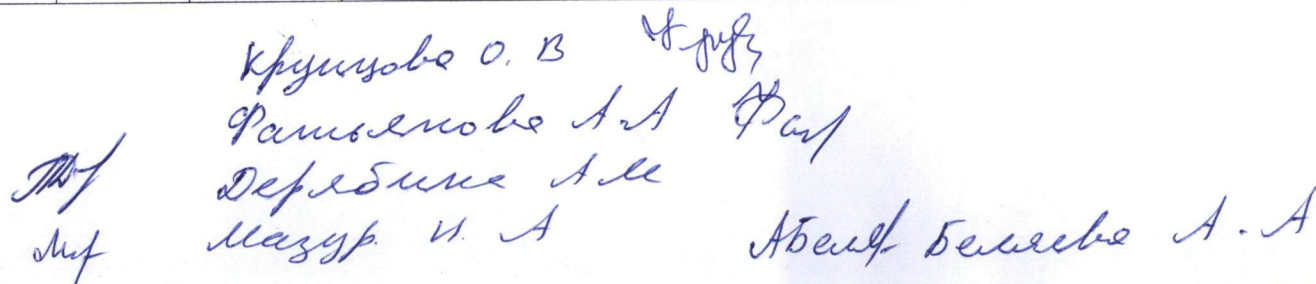 Крупцова О. В
Фатьянова А.А
Дерябина А М
Мазур. И. А
Беляева А. А